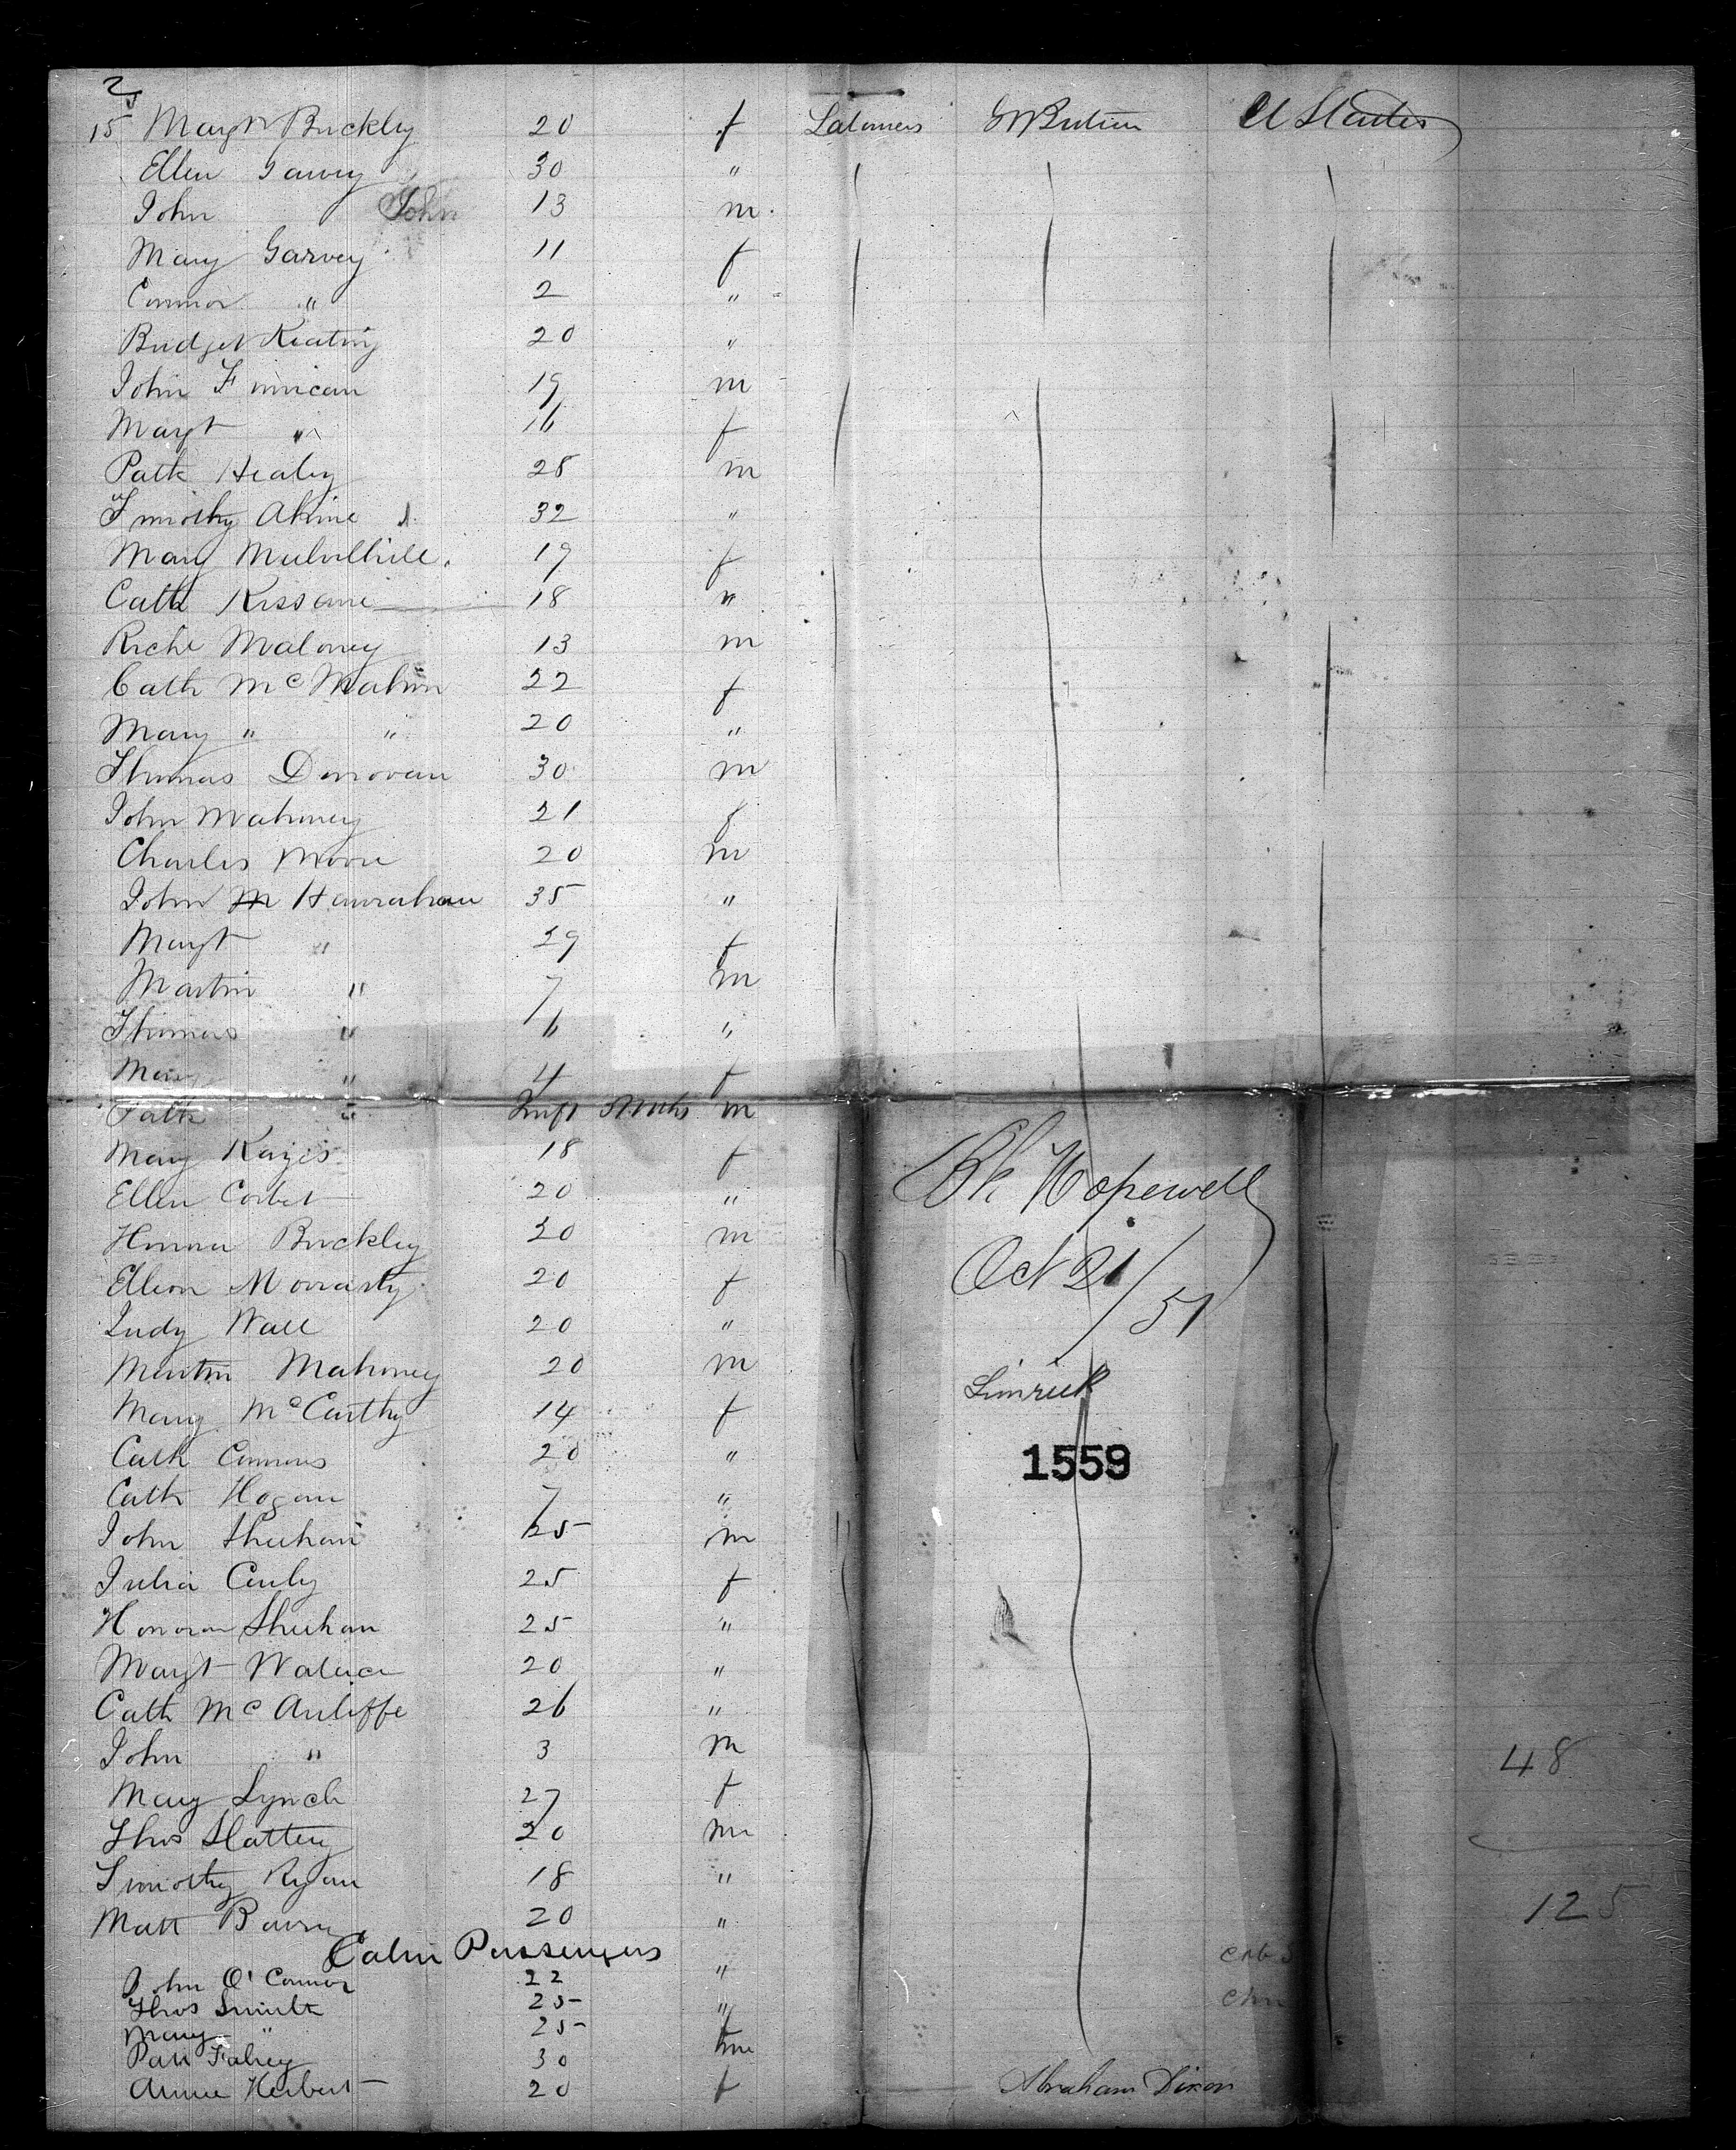 2
15 Margt Buckley 20 f Labourers G Britain U States
Ellen Garvey 30 "
John John 13 m
Mary Garvey 11 f
Connor " 2 "
Bridget Keating 20 "
John Finnican 19 m
Margt " 16 f
Patk Healey 28 m
Timothy Ahine 32 "
Mary Mulvilhill 19 f
Cath Kissane 18 "
Richd Maloney 13 m
Cath McMahon 22 f
Mary " " 20 "
Thomas Donovan 30 m
John Mahoney 21 f
Charles Moore 20 m
John M Hanrahan 35 "
Margt " 29 f
Martin " 7 m
Thomas " 6 "
Mary " 4 f
Patk " Inft Mnths m
Mary 18 f
Ellen Corbet 20 "
Honora Buckley 20 m
Ellen Morriarty 20 f
Judy Wall 20 "
Martin Mahoney 20 m
Mary McCarthy 14 f
Cath Connors 20 "
Cath Hogan 7 "
John Sheehan 25 m
Julia 25 f
Honora Sheehan 25 "
Margt Wallace 20 "
Cath McAuliffe 26 "
John " 3 m
Mary Lynch 27 f
Thos Slattery 20 m
Timothy Ryan 18 "
Matt 20 "
Cabin Passengers
John O'Connor 22 "
Thos Smith 25 "
Mary " 25 f
Patt Fahey 30 m
Annie Herbert 20 f
Bk Hopewell
Oct 21/51
Limrick
1559
48
125
Abraham Dixon